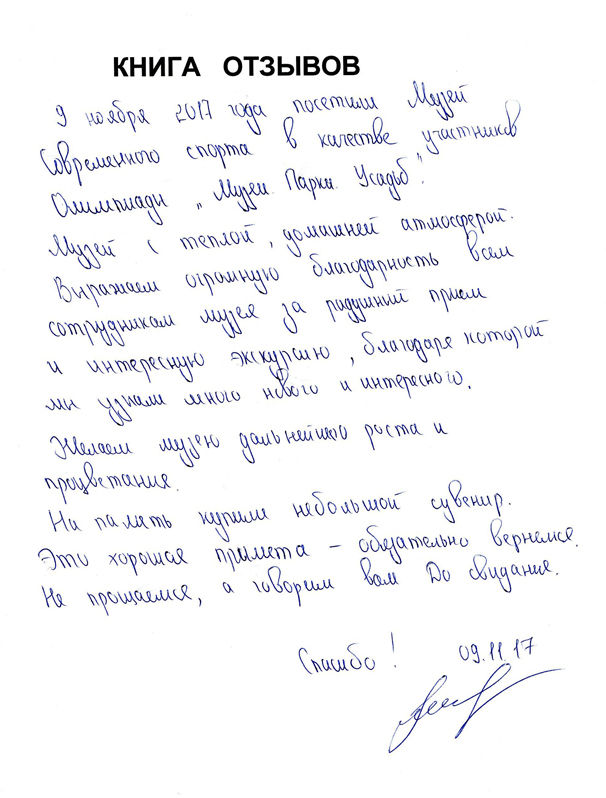 КНИГА ОТЗЫВОВ
9 ноября 2017 года посетили Музей
Современного спорта в качестве участников
Олимпиады „Музеи. Парки. Усадьб".
Музей с теплой, домашней атмосферой.
Выражаем огромную благодарность всем
сотрудникам музея за радушный прием
и интересную экскурсию, благодаря которой
мы узнали много нового и интересного.
Желаем музею дальнейшего роста и
процветания.
На память купили небольшой сувенир.
Это хорошая примета – обязательно вернемся.
Не прощаемся, а говорим вам До свидания.
Спасибо! 09.11.17